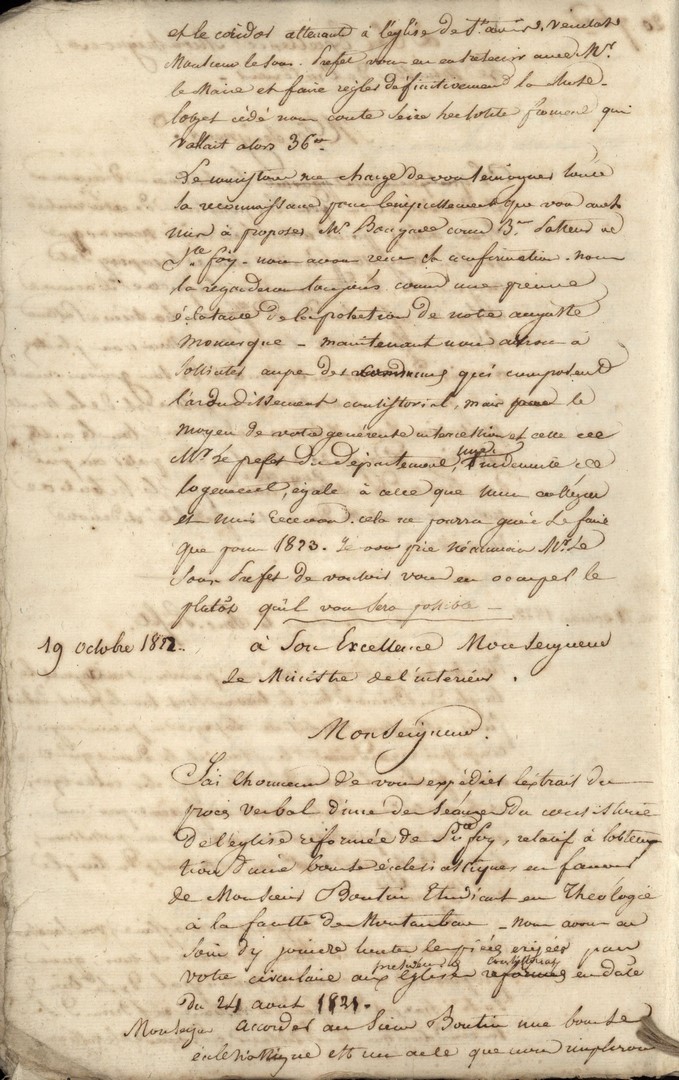 et le coridor attenant à l'église de veuillés
Monsieur le Sous-Prefet vous en entretenir avec Mr.
le Maire et faire régler définitivement la chose
l'objet cédé nous coute seize hectolitre froment qui
vallait alors 36
Le consistoire me charge de vous témoigner toute
sa reconnaissance pour l'empressement que vous avés
mis à proposer Mr. comme 3me Pasteur de
Ste foy. nous avons recu et confirmation. nous
la regarderons toujours comme une preuve
éclatante de la protection de notre auguste
monarque - maintenant nous avons à
solliciter auprès des communes qui composent
l'arondissement consistorial, mais par le
moyen de votre généreuse intercession et celle de
Mr. le prefet du département, indemnité de
logement, égale à celle que mon collégue
et moi recevons. cela ne pourra guére se faire
que pour 1823. Je vous prie néanmoins Mr. Le
Sous Prefet de vouloir vous en occuper le
platôt qu'il vous sera possible -
19 octobre 1822. à Son Excellence Monseigneur
Le Ministre de l'interieur.
Monseigneur.
J'ai l'honneur de vous expédier l'extrait du
procés verbal d'une des séances du consistoire
de l'église réformée de Ste foy, relatif à l'obten
tion d'une bourse éclesiastiques en faveur
de Monsieur Boutin Etudiant en Théologie
à la faculté de Montauban - nous avons eu
soin d'y joindre toutes les piéces exigées par
votre circulaire aux présidens des consistoires en date
du 24 aout 1821.
Monseigneur accorder au Sieur Boutin une bourse
éclesiastique est un acte que nous implorons